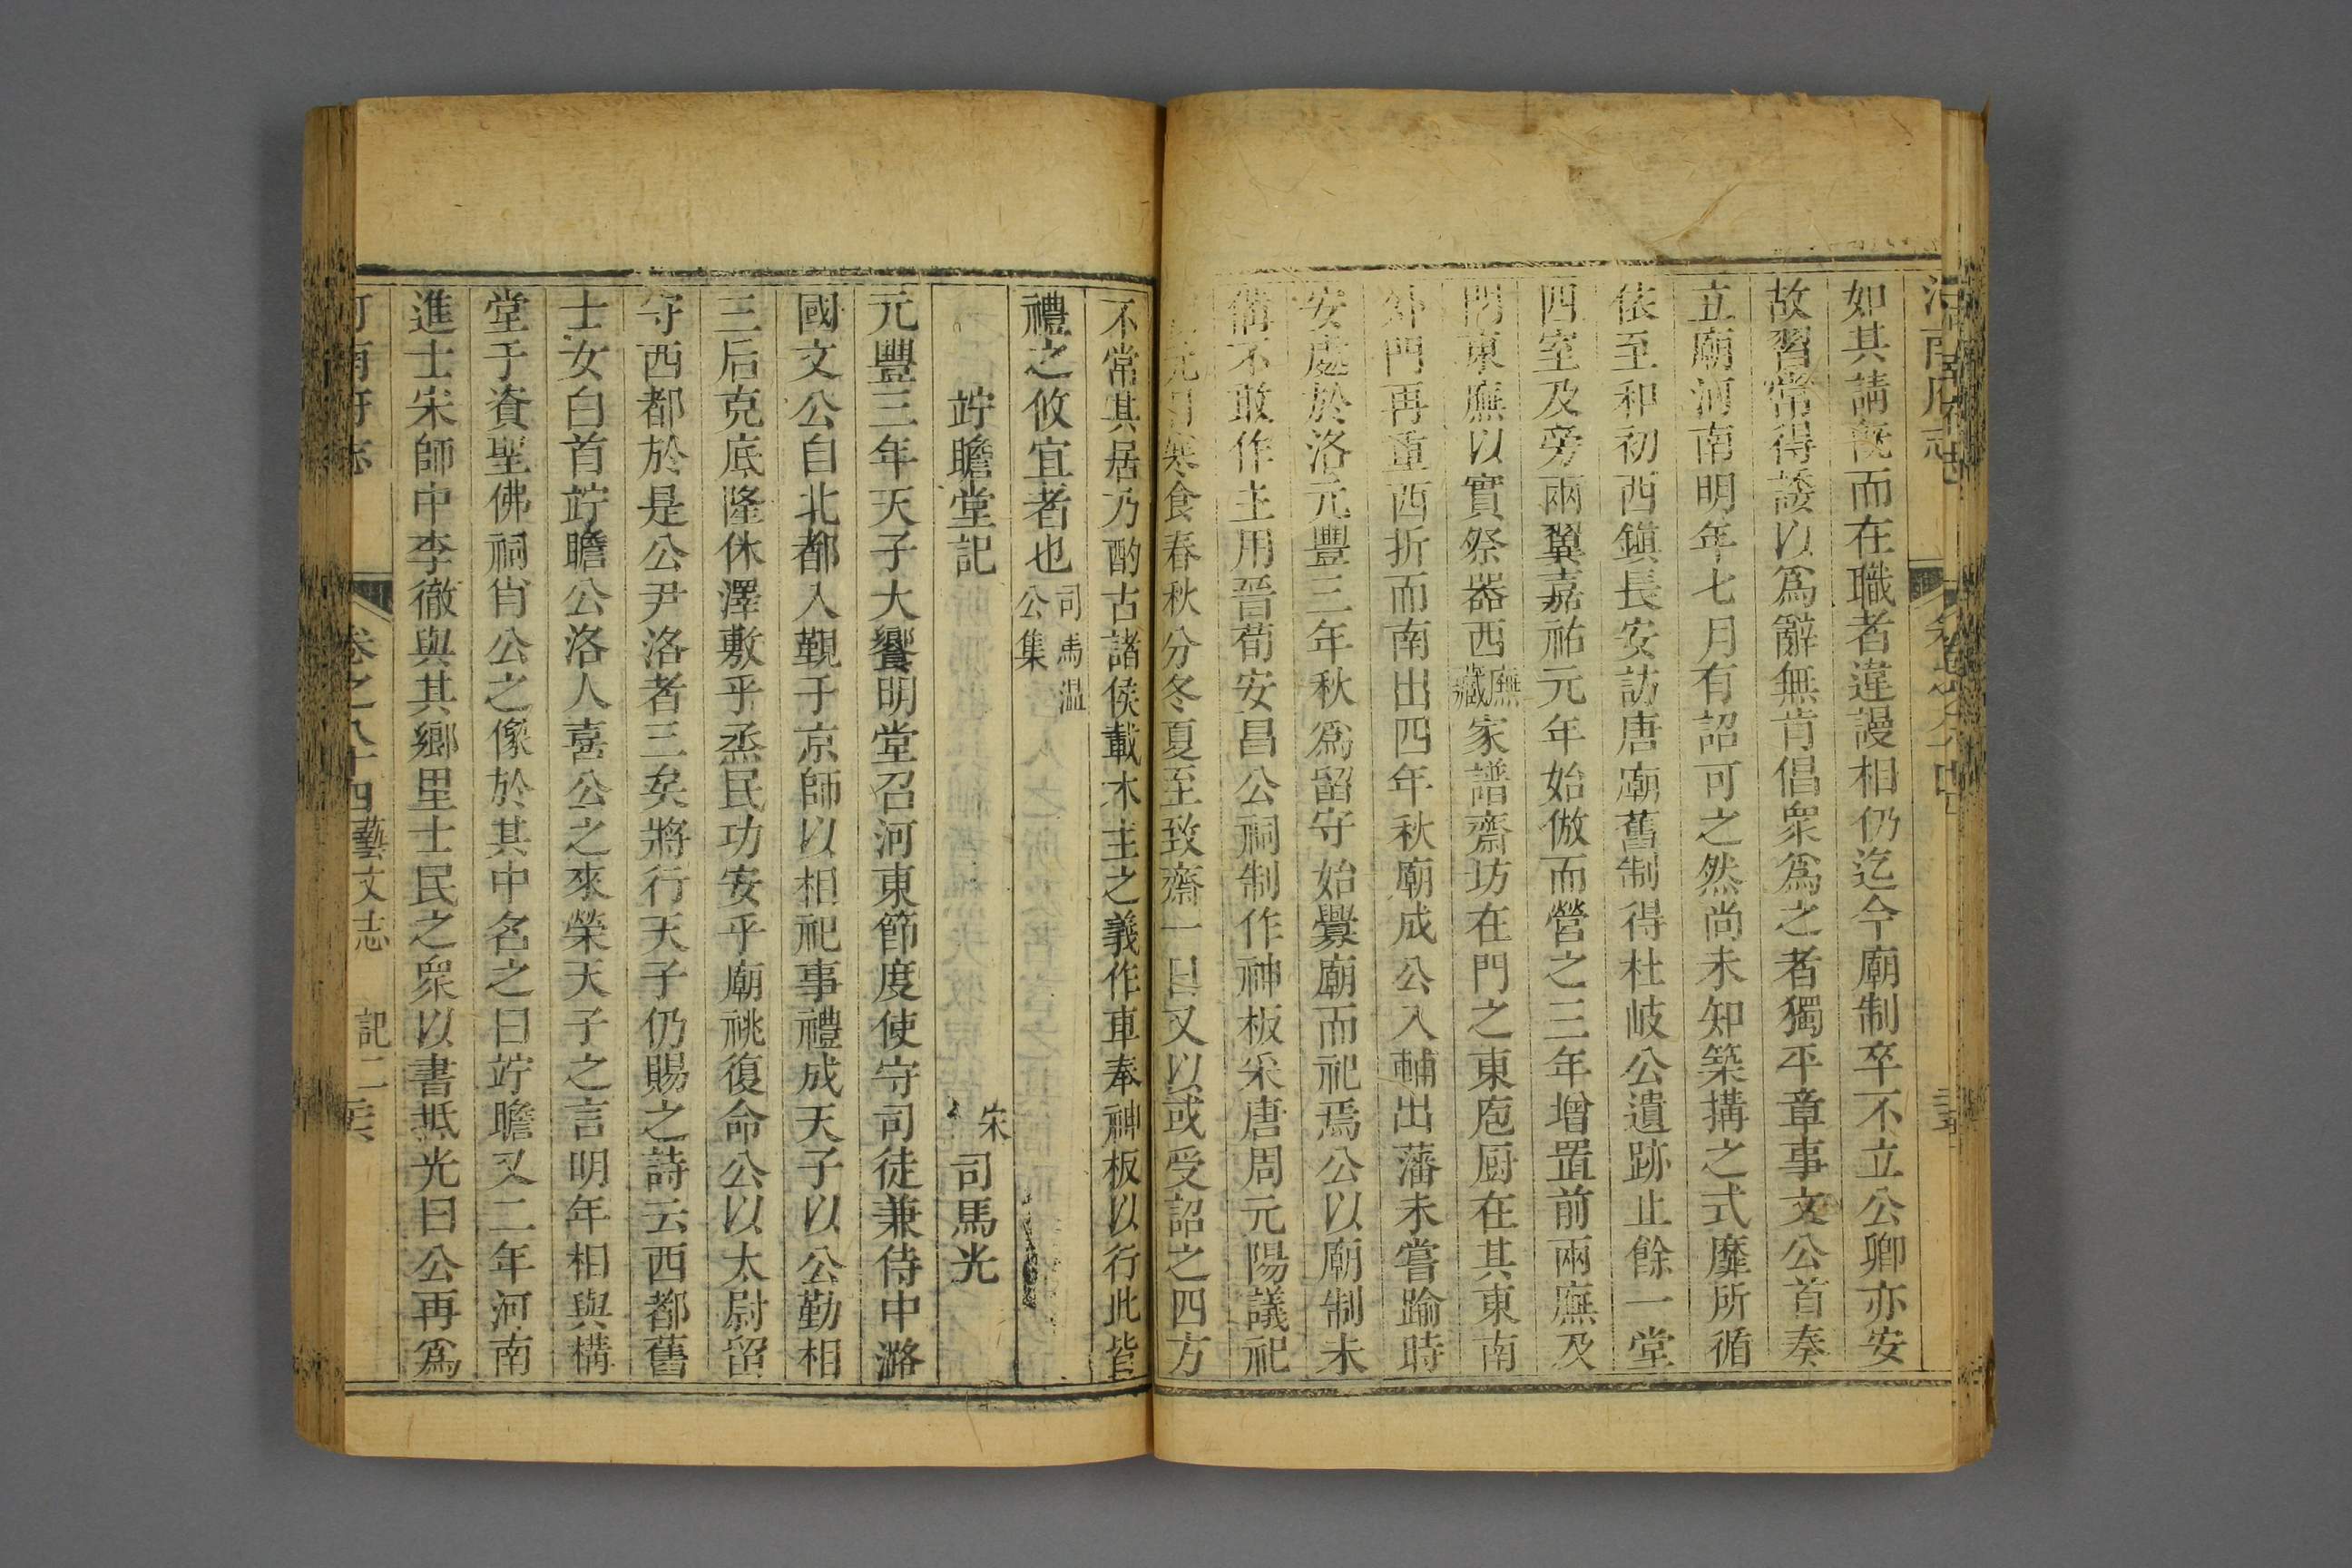 河南府志
如其請旣而在職者違謾相仍迄今廟制卒不立公卿亦安
故習常得諉以爲辭無肯倡衆爲之者獨平章事文公首奏
立廟河南明年七月有詔可之然尚未知築搆之式靡所循
依至和初西鎮長安訪唐廟舊制得杜岐公遺跡止餘一堂
四室及旁兩翼嘉祐元年始倣而營之三年增置前兩廡及
門東廡以實祭器西廡藏家譜齋坊在門之東庖厨在其東南
外門再重西折而南出四年秋廟成公入輔出藩未嘗踰時
安處於洛元豐三年秋爲留守始釁廟而祀焉公以廟制未
備不敢作主用晉荀安昌公祠制作神板采唐周元陽議祀
以元日寒食春秋分冬夏至致齋一日又以或受詔之四方
不常其居乃酌古諸侯載木主之義作車奉神板以行此皆
禮之攸宜者也司馬温公集
竚瞻堂記
宋 司馬光
元豐三年天子大饗明堂召河東節度使守司徒兼侍中潞
國文公自北都入覲于京師以相祀事禮成天子以公勤相
三后克底隆休澤敷乎烝民功安乎廟祧復命公以太尉留
守西都於是公尹洛者三矣將行天子仍賜之詩云西都舊
士女白首竚瞻公洛人喜公之來榮天子之言明年相與構
堂于資聖佛祠肖公之像於其中名之曰竚瞻又二年河南
進士宋師中李徹與其鄉里士民之衆以書抵光曰公再爲
河南府志 卷之八十四 藝文志 記二